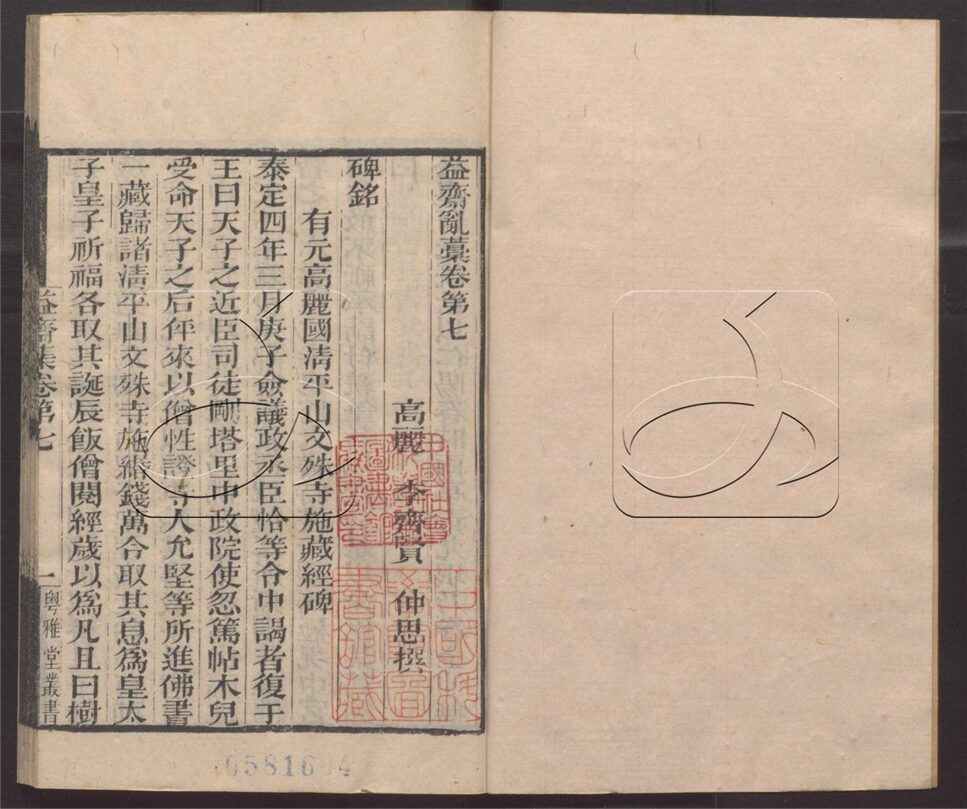 益齋亂藁卷第七
高麗 李齊賢 仲思撰
碑銘
有元高麗國淸平山文殊寺施藏經碑
泰定四年三月庚子僉議政丞臣恰等合中謁者復于
王曰天子之近臣司徒剛塔里中政院使忽篤帖木兒
受命天子之后伻來以僧性澄寺人允堅等所進佛書
一藏歸諸淸平山文殊寺施緡錢萬合取其息爲皇太
子皇子祈福各取其誕辰飯僧閱經歲以爲凡且曰樹
益齋集卷第七
一
粵雅堂叢書
0581604